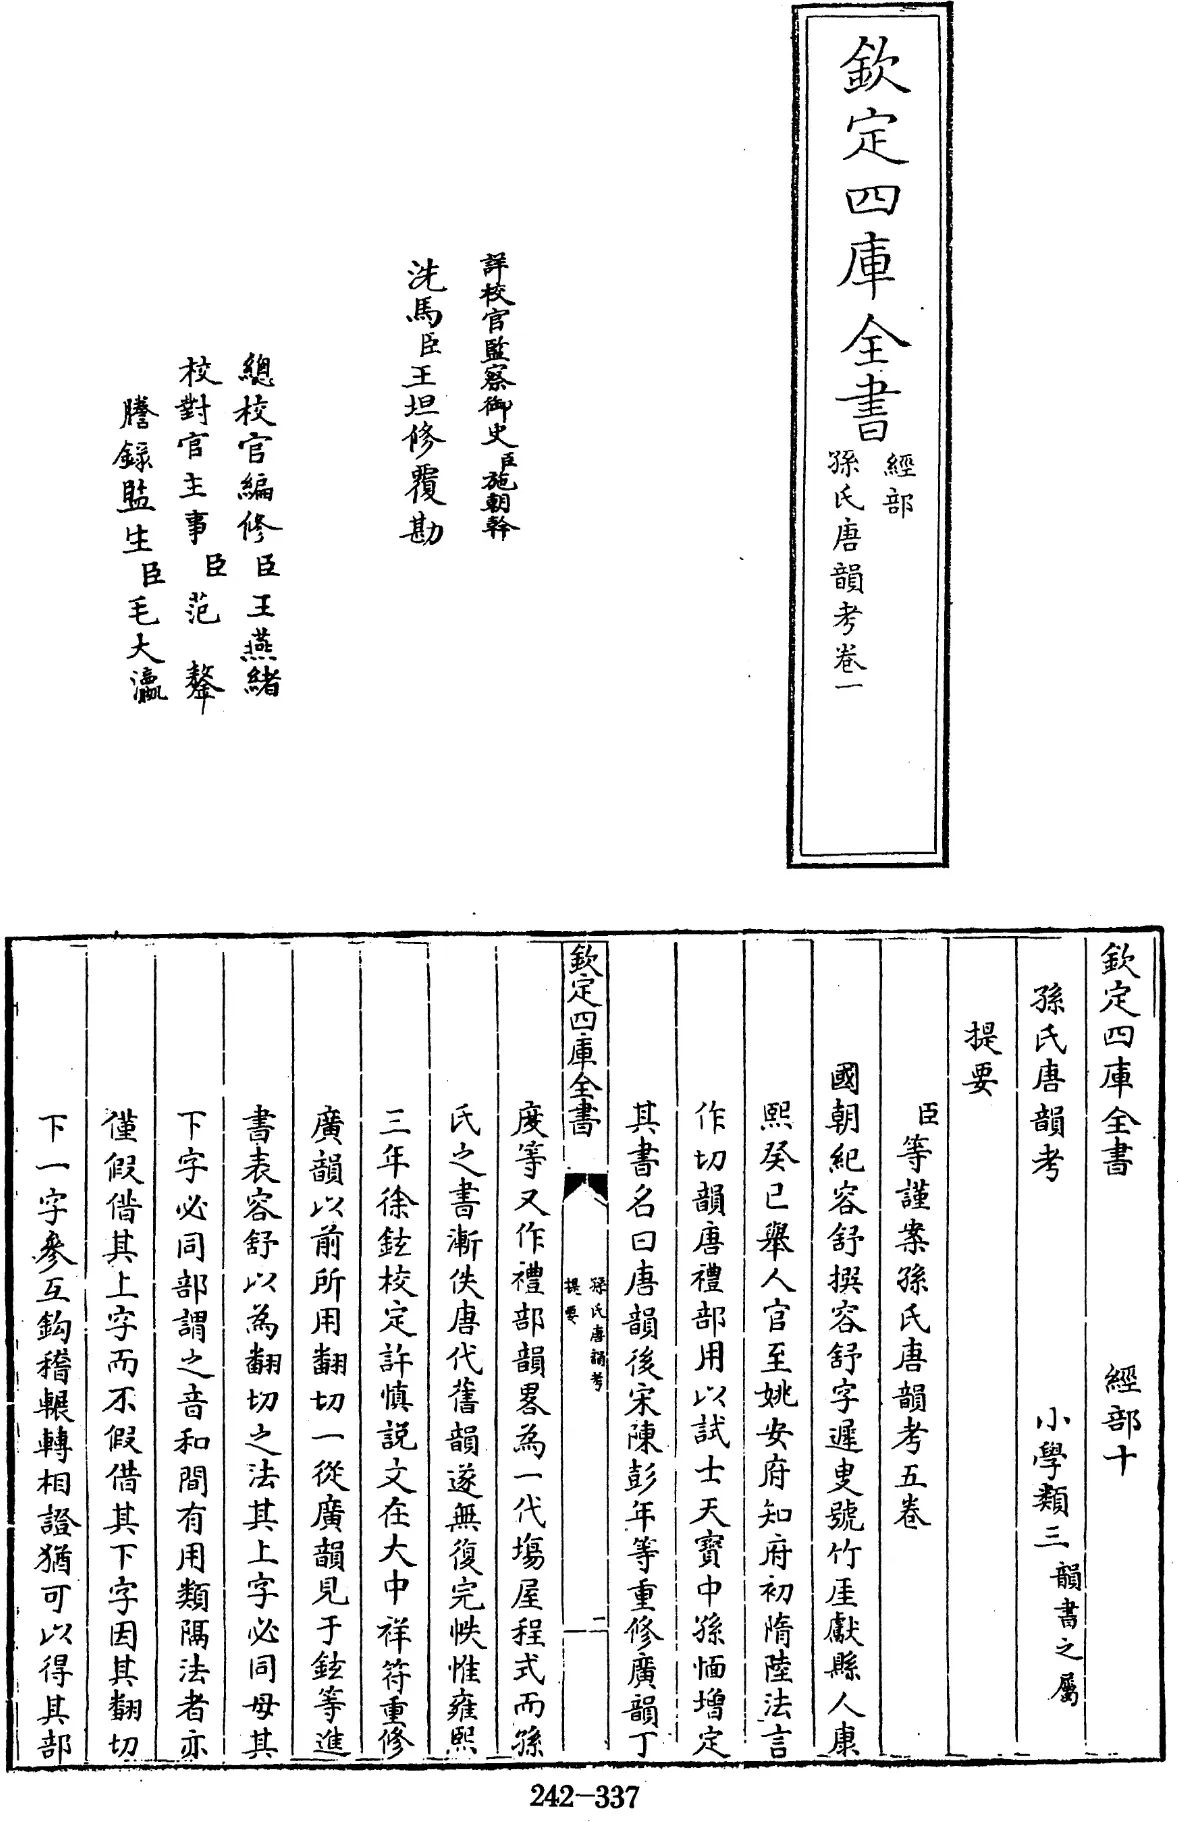 欽定四庫全書
經部
孫氏唐韻考卷一
詳校官監察御史臣施朝幹
洗馬臣王坦修覆勘
總校官編修臣王燕緒
校對官主事臣范鏊
謄錄監生臣毛大瀛
欽定四庫全書 經部十
孫氏唐韻考 小學類三 韻書之屬
提要
臣等謹案孫氏唐韻考五卷
國朝紀容舒撰容舒字遲叟號竹厓獻縣人康
熙癸巳舉人官至姚安府知府初隋陸法言
作切韻唐禮部用以試士天寶中孫愐增定
其書名曰唐韻後宋陳彭年等重修廣韻丁
欽定四庫全書
孫氏唐韻考
提要
二
度等又作禮部韻畧為一代塲屋程式而孫
氏之書漸佚唐代舊韻遂無復完帙惟雍熙
三年徐鉉校定許慎説文在大中祥符重修
廣韻以前所用翻切一從廣韻見于鉉等進
書表容舒以為翻切之法其上字必同母其
下字必同部謂之音和間有用類隔法者亦
僅假借其上字而不假借其下字因其翻切
下一字參互鈎稽輾轉相證猶可以得其部
242-337